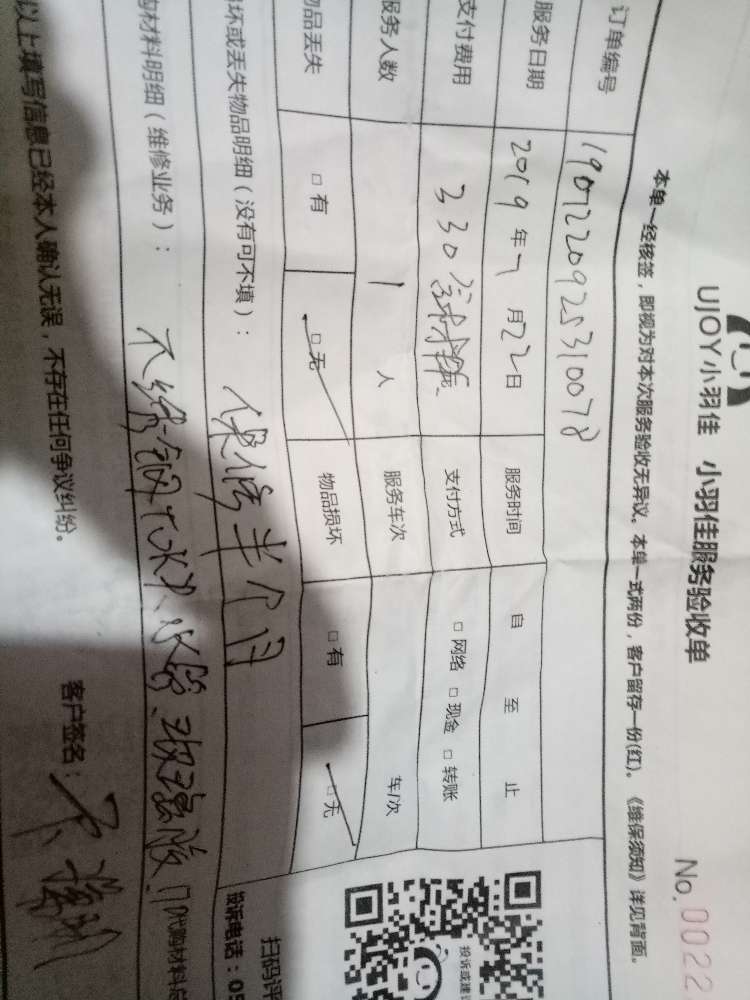 UJOY小羽佳 小羽佳服务验收单 No.0022
本单一经核签，即视为对本次服务验收无异议。本单一式两份，客户留存一份(红)。《维保须知》详见背面。
订单编号 1907220925310078
服务日期 2019年7月22日 服务时间 自 至 止
支付费用 330含材料 支付方式 □网络 □现金 □转账
服务人数 1人 服务车次 车/次
物品丢失 □有 □无 物品损坏 □有 □无
坏或丢失物品明细（没有可不填）： 保修半个月
购材料明细（维修业务）： 不绣钢 玻璃胶 代购材料后
以上填写信息已经本人确认无误，不存在任何争议纠纷。 客户签名：
投诉或建议
扫码评
投诉电话：05